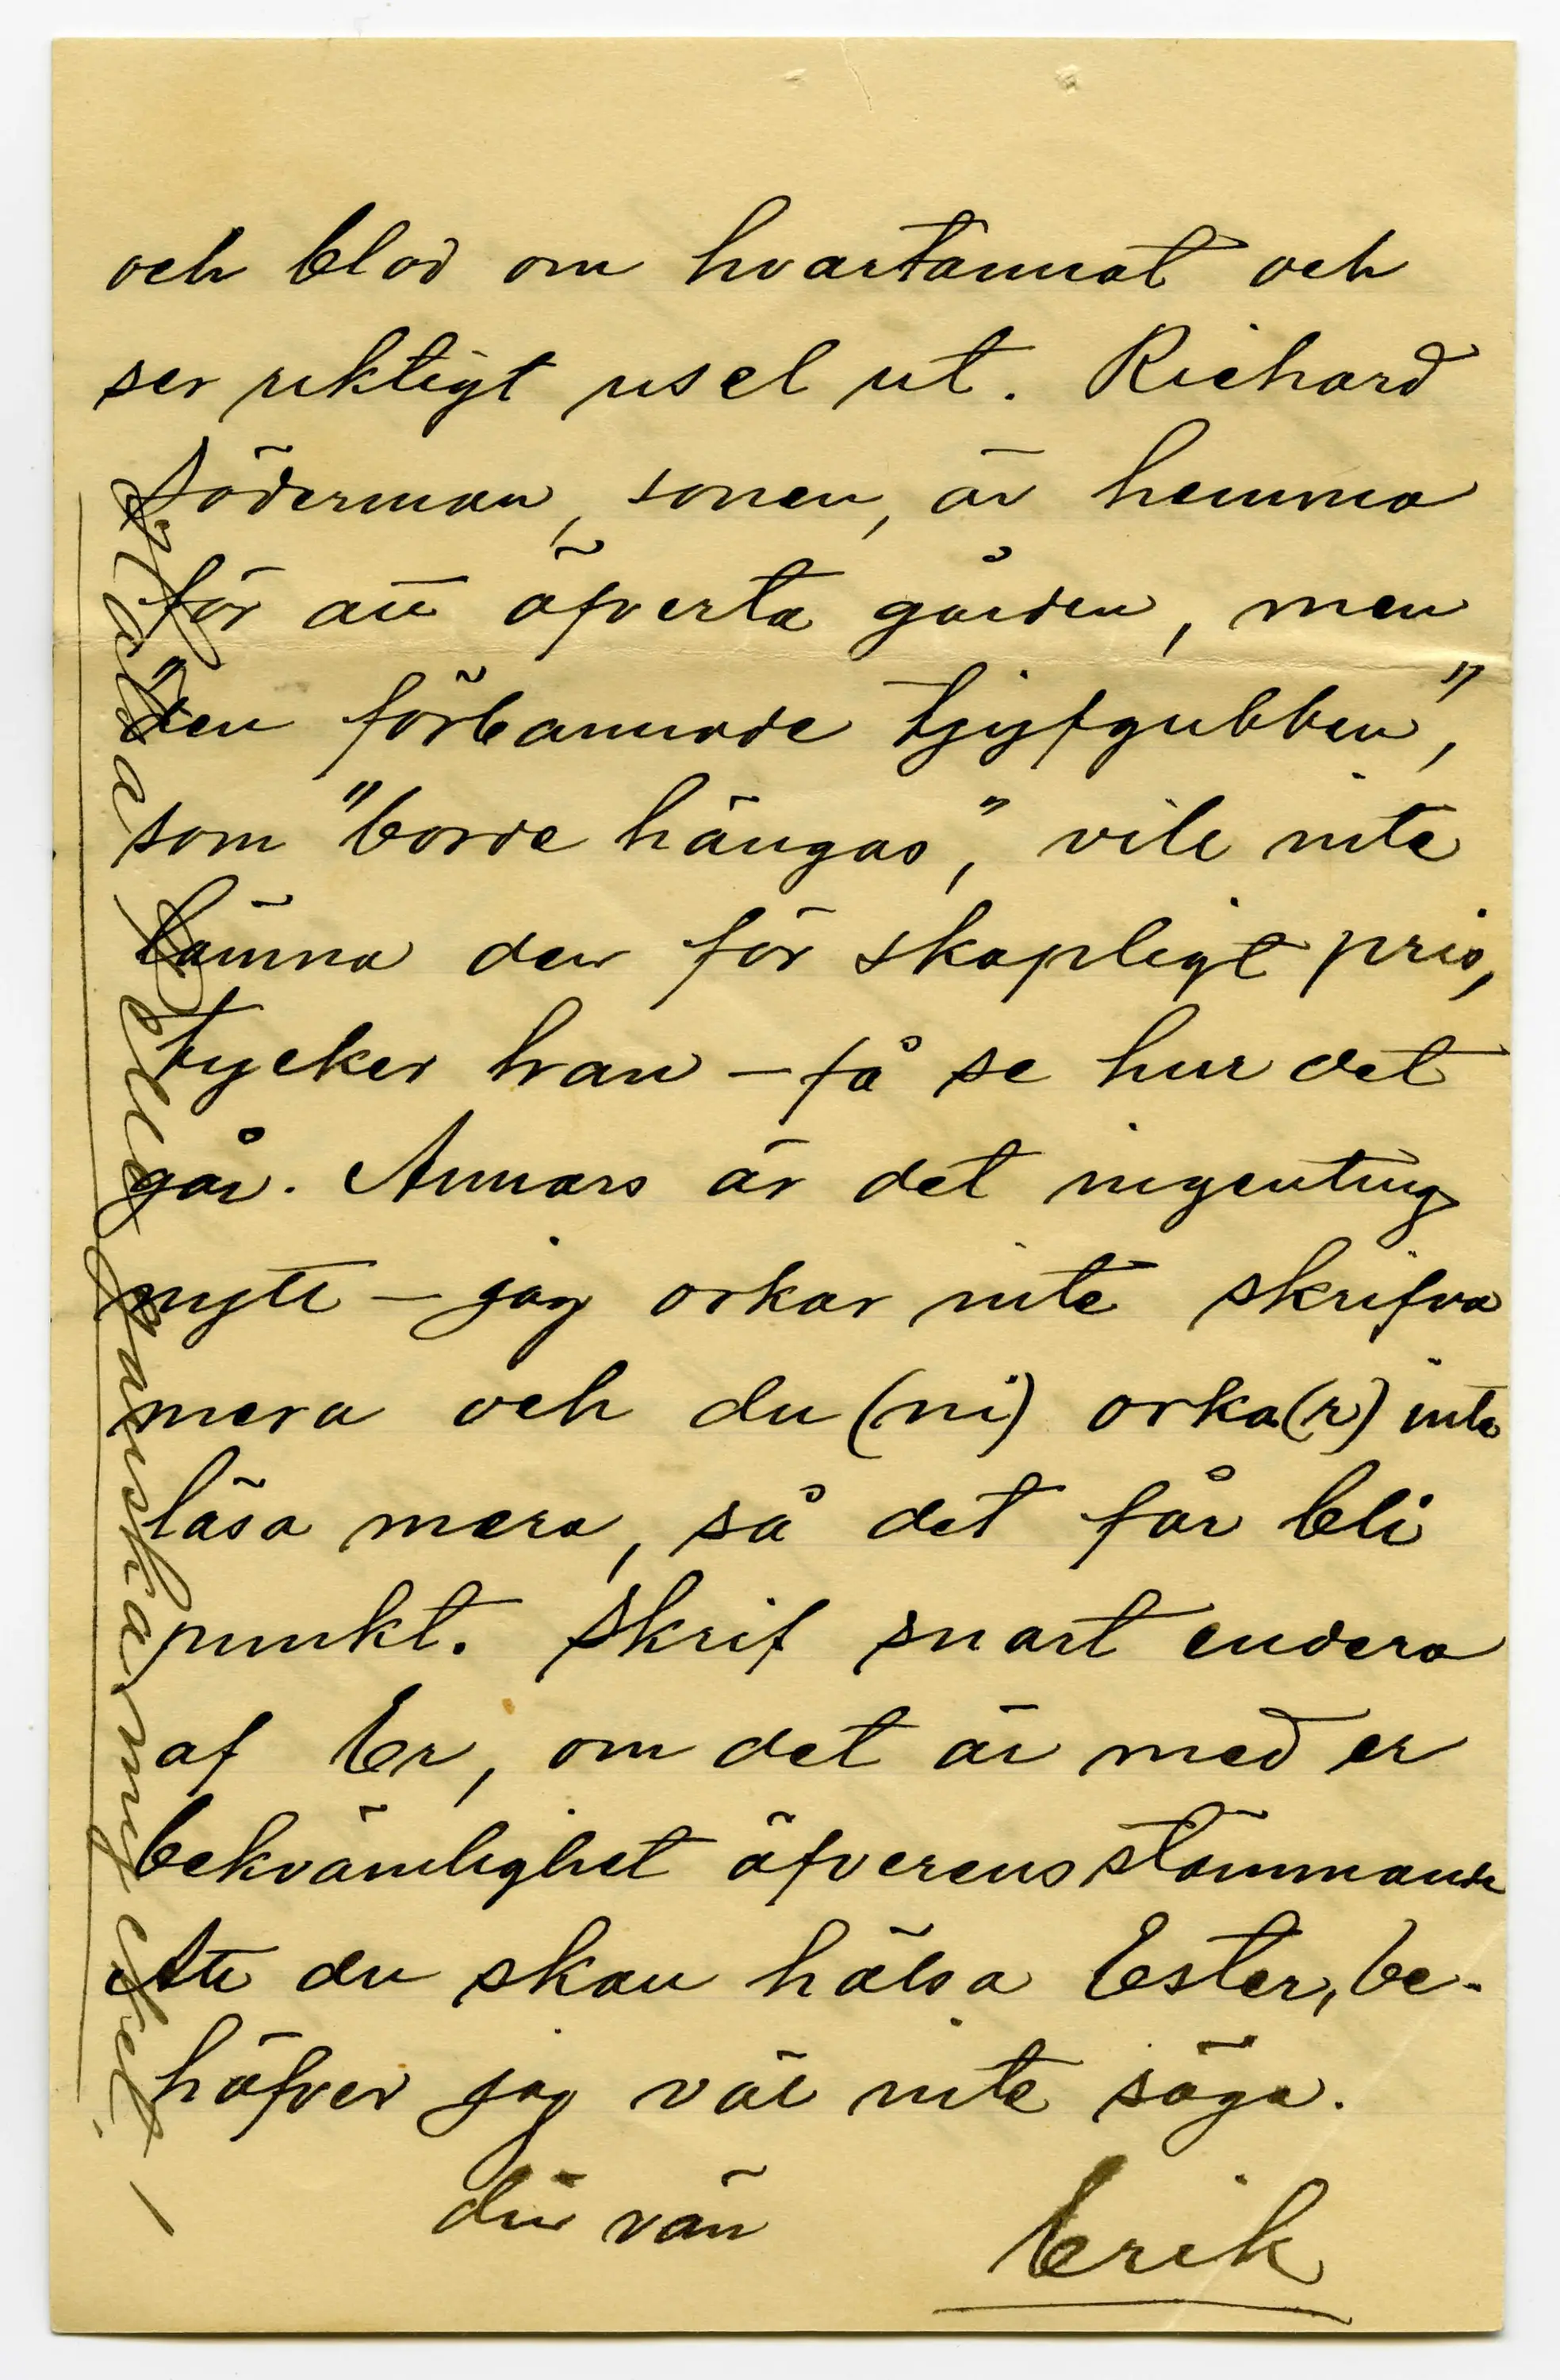 och blod om hvartannat och
ser riktigt usel ut. Richard
Söderman, sonen, är hemma
för att öfverta gården, men
"den förbannade tjyfgubben",
som "borde hängas", vill inte
lämna den för skapligt pris,
tycker han – få se hur det
går. Annars är det ingenting
nytt – jag orkar inte skrifva
mera och du (ni) orka(r) inte
läsa mera, så det får bli
punkt. Skrif snart endera
af Er, om det är med er
bekvämlighet öfverensstämmande
Att du skall hälsa Ester, be-
höfver jag väl inte säga.
din vän
Erik
Hälsa Pelle ganska mycket! –